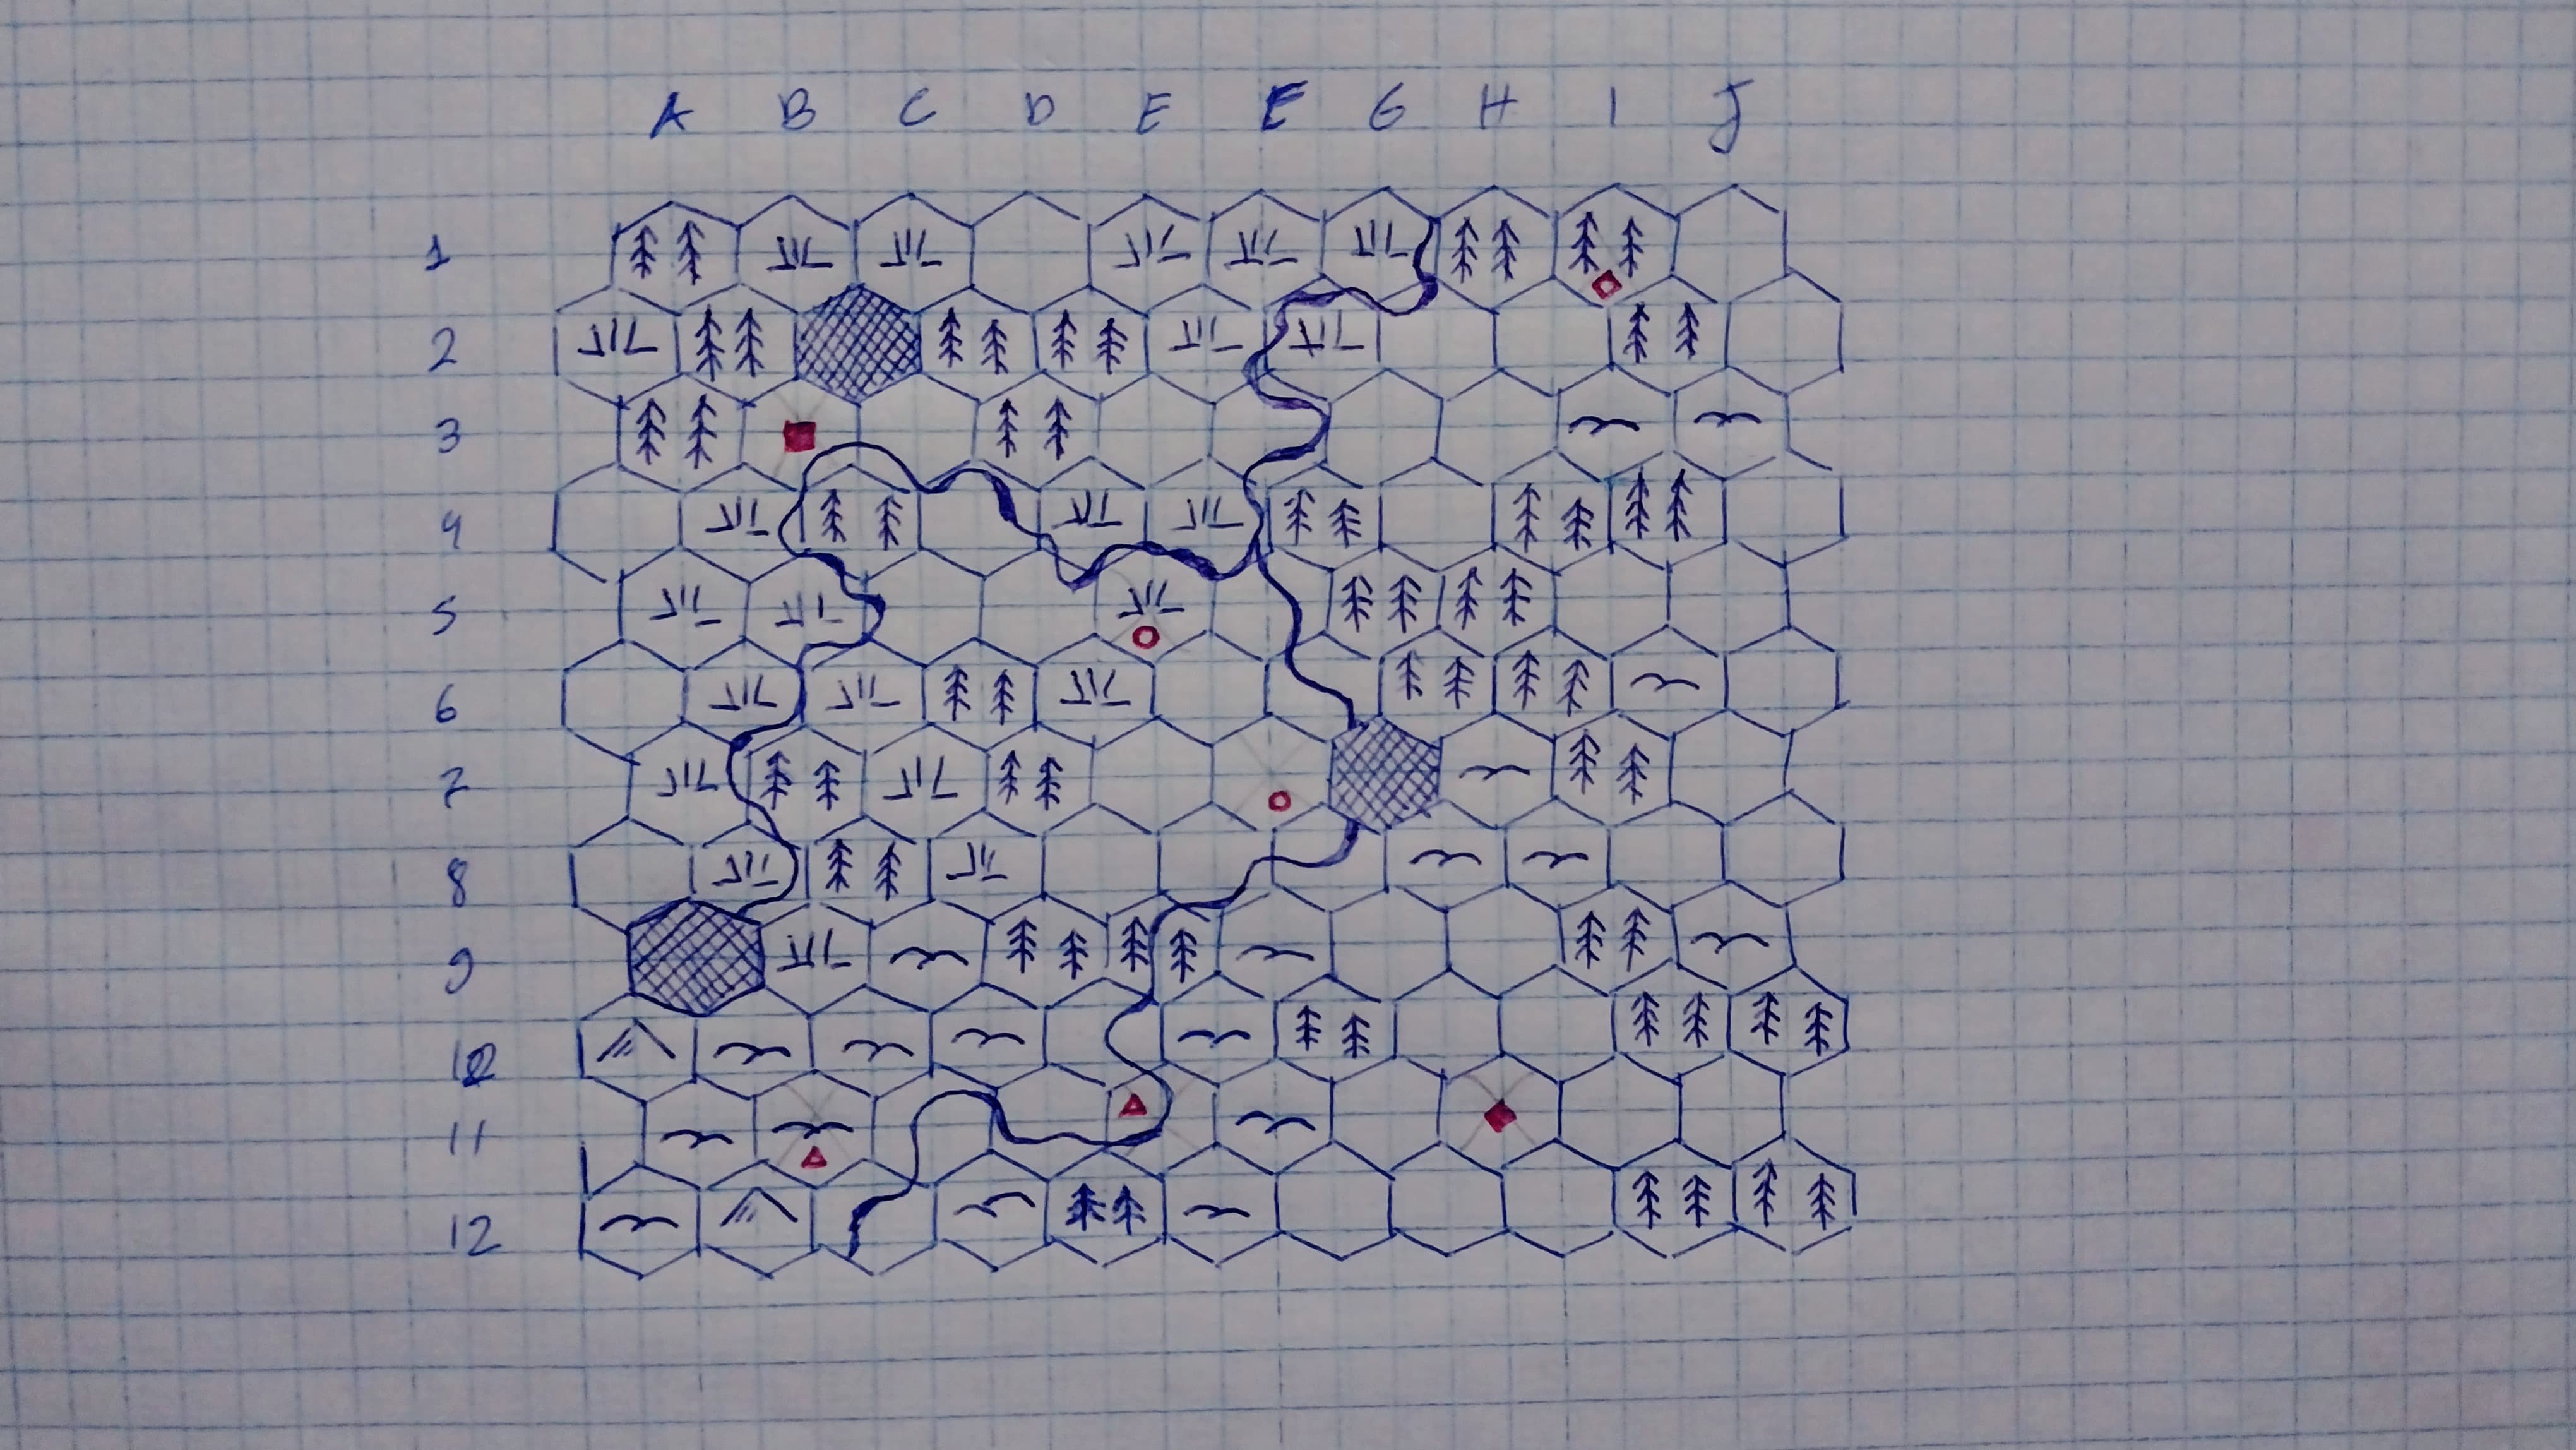 A B C D E F G H I J
1
2
3
4
5
6
7
8
9
10
11
12